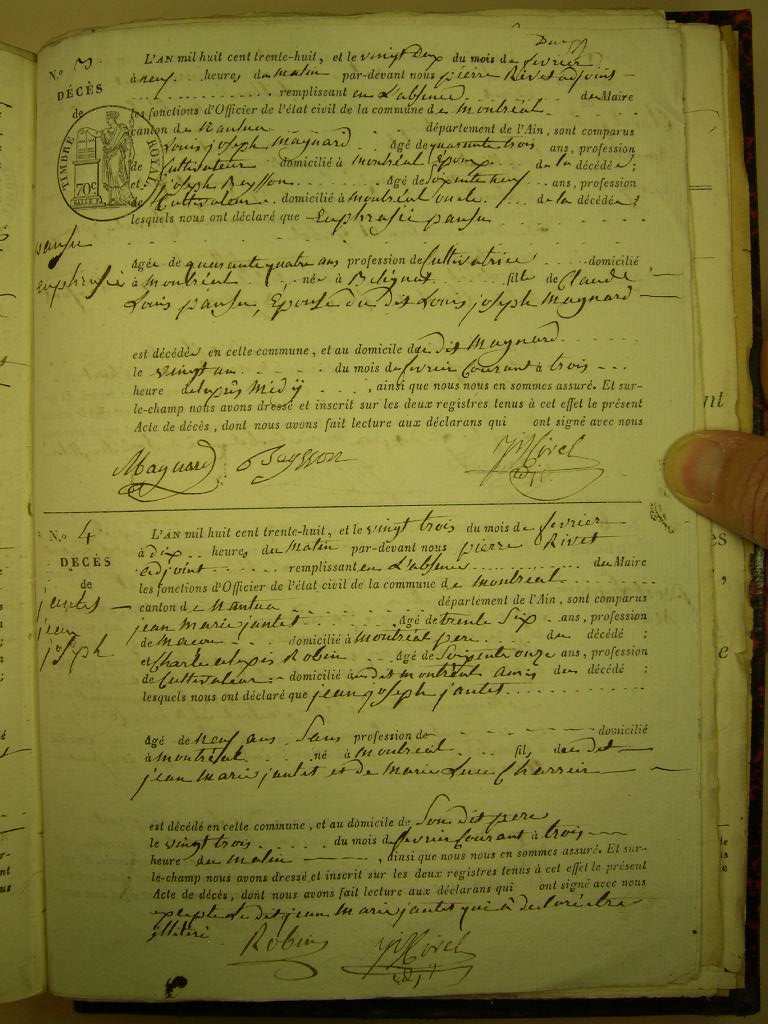 N.o 3
DÉCÈS
de
pansu
euphrosie
TIMBRE ROYAL
70c
L'AN mil huit cent trente-huit, et le vingt deux du mois de fevrier
à neuf heures du matin par-devant nous pierre Rivet adjoint
remplissant en L'absence du Maire
les fonctions d'Officier de l'état civil de la commune de montréal
canton de Nantua département de l'Ain, sont comparus
Louis joseph maynard âgé de quarente trois ans, profession
de Cultivateur domicilié à montréal Epoux de la décédée;
et joseph Beysson âgé de soixante neuf ans, profession
de Cultivateur domicilié à montréal oncle de la décédée;
lesquels nous ont déclaré que Euphrosie pansu
âgée de quarante quatre ans profession de Cultivatrice domicilié
à montréal née à Béligneux fille de Claude
Louis pansu, Epouse du dit Louis joseph Maynard
est décédée en cette commune, et au domicile du dit Maynard
le vingt un du mois de fevrier Courant à trois
heure de laprès Midÿ, ainsi que nous nous en sommes assuré. Et sur-
le-champ nous avons dressé et inscrit sur les deux registres tenus à cet effet le présent
Acte de décès, dont nous avons fait lecture aux déclarans qui ont signé avec nous
Maynard Beysson
N.o 4
DÉCÈS
de
jantet
jean
joseph
L'AN mil huit cent trente-huit, et le vingt trois du mois de fevrier
à Dix heures du Matin par-devant nous pierre Rivet
adjoint remplissant en L'absence du Maire
les fonctions d'Officier de l'état civil de la commune de montréal
canton de Nantua département de l'Ain, sont comparus
jean marie jantet âgé de trente Six ans, profession
de Macon domicilié à montréal pere du décédé;
et Charle alexis Robin âgé de Soixente onze ans, profession
de Cultivateur domicilié au dit montréal amis du décédé;
lesquels nous ont déclaré que jean joseph jantet
âgé de neuf ans Sans profession de domicilié
à montréal né à montréal fils du dit
jean marie jantet et de marie Luce
est décédé en cette commune, et au domicile de Son dit pere
le vingt trois du mois de fevrier Courant à trois
heure du matin, ainsi que nous nous en sommes assuré. Et sur-
le-champ nous avons dressé et inscrit sur les deux registres tenus à cet effet le présent
Acte de décès, dont nous avons fait lecture aux déclarans qui ont signé avec nous
excepté le dit jean marie jantet qui à declaré etre
illitéré
Robin